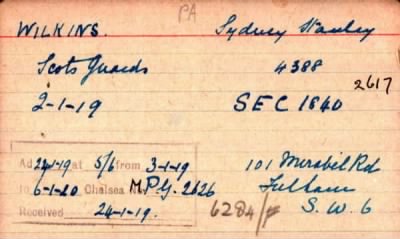 PA
WILKINS. Sydney Stanley
Scots Guards 4388
2617
2-1-19 SEC 1840
Ad 24-1-19 at 5/6 from 3-1-19 101 Mirabel Rd
to 6-1-20 Chelsea M.P.G. 2626 Fulham
Received 24-1-19. 6284/ S.W.6